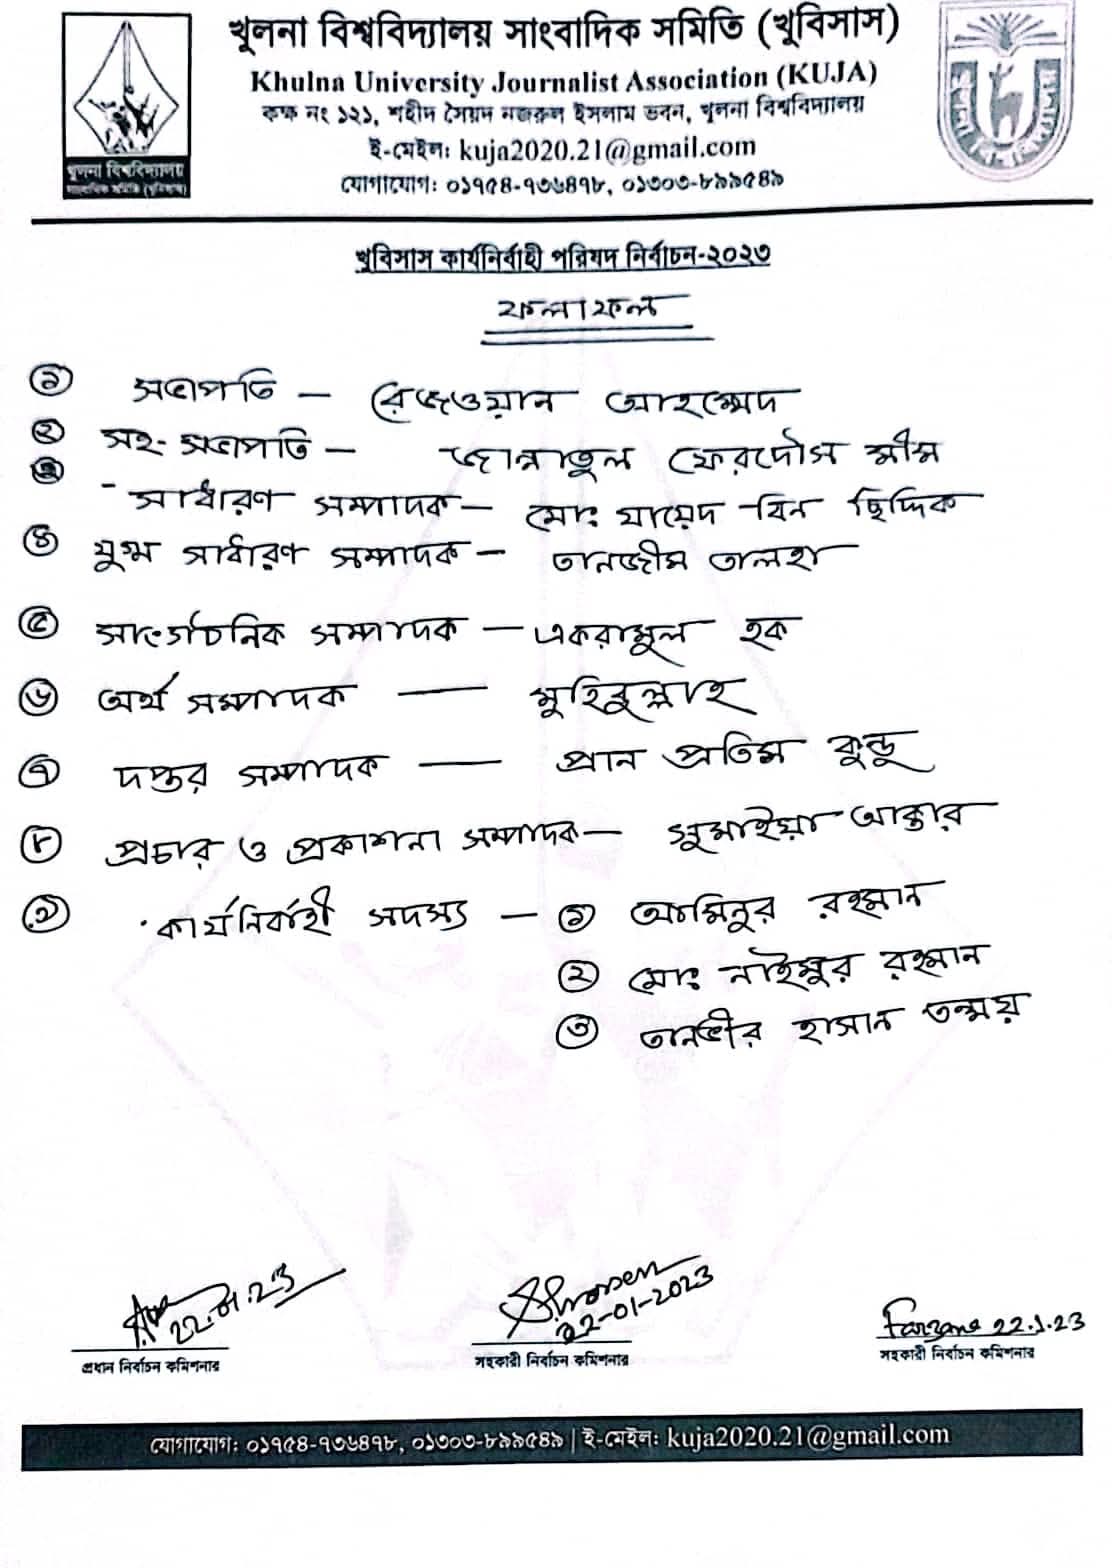 খুলনা বিশ্ববিদ্যালয় সাংবাদিক সমিতি (খুবিসাস)
Khulna University Journalist Association (KUJA)
কক্ষ নং ১২১, শহীদ সৈয়দ নজরুল ইসলাম ভবন, খুলনা বিশ্ববিদ্যালয়
ই-মেইল: kuja2020.21@gmail.com
যোগাযোগ: ০১৭৫৪-৭৩৬৪৭৮, ০১৩০৩-৮৯৯৫৪৯
খুলনা বিশ্ববিদ্যালয়
সাংবাদিক সমিতি (খুবিসাস)
খুলনা বিশ্ববিদ্যালয়
খুবিসাস কার্যনির্বাহী পরিষদ নির্বাচন-২০২৩
ফলাফল
১ সভাপতি – রেজওয়ান আহম্মেদ
২ সহ-সভাপতি – জান্নাতুল ফেরদৌস মীম
৩ সাধারণ সম্পাদক – মোঃ যায়েদ বিন ছিদ্দিক
৪ যুগ্ম সাধারণ সম্পাদক – তানজীম তালহা
৫ সাংগঠনিক সম্পাদক – একরামুল হক
৬ অর্থ সম্পাদক — মুহিবুল্লাহ
৭ দপ্তর সম্পাদক — প্রান প্রতিম কুন্ডু
৮ প্রচার ও প্রকাশনা সম্পাদক – সুমাইয়া আক্তার
৯ কার্যনির্বাহী সদস্য – ১ আমিনুর রহমান
২ মোঃ নাইমুর রহমান
৩ তানভীর হাসান তন্ময়
22.01.23
22-01-2023
Farzana 22.1.23
প্রধান নির্বাচন কমিশনার
সহকারী নির্বাচন কমিশনার
সহকারী নির্বাচন কমিশনার
যোগাযোগ: ০১৭৫৪-৭৩৬৪৭৮, ০১৩০৩-৮৯৯৫৪৯ | ই-মেইল: kuja2020.21@gmail.com